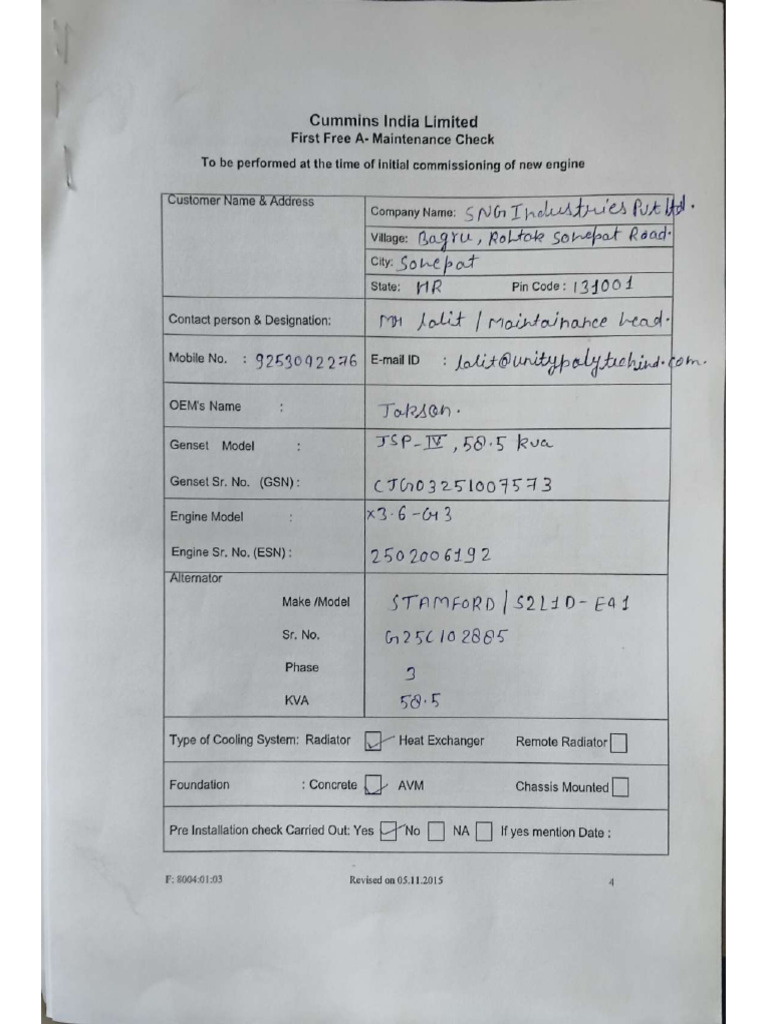 Cummins India Limited
First Free A- Maintenance Check
To be performed at the time of initial commissioning of new engine
Customer Name & Address
Company Name: SNG Industries Pvt Ltd.
Village: Bagru, Rohtak Sonepat Road.
City: Sonepat
State: HR Pin Code : 131001
Contact person & Designation: Mr lalit / Maintainance head.
Mobile No. : 9253092276 E-mail ID : lalit@unitypolytechind.com.
OEM's Name : Jakson.
Genset Model : JSP-IV, 58.5 kva
Genset Sr. No. (GSN) : CJG03251007573
Engine Model : X3.6-G13
Engine Sr. No. (ESN) : 2502006192
Alternator
Make /Model STAMFORD / S2L1D-E41
Sr. No. G25C102885
Phase 3
KVA 58.5
Type of Cooling System: Radiator Heat Exchanger Remote Radiator
Foundation : Concrete AVM Chassis Mounted
Pre Installation check Carried Out: Yes No NA If yes mention Date :
F: 8004:01:03 Revised on 05.11.2015 4